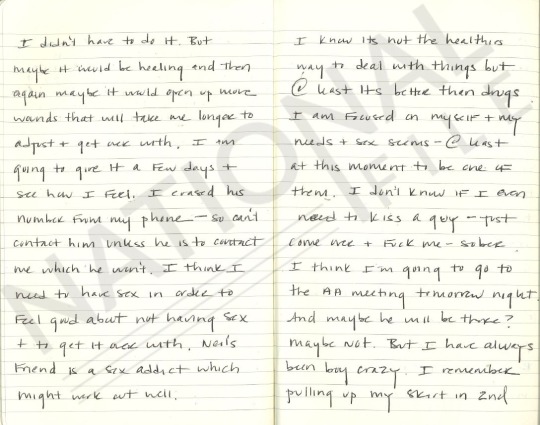 I didn't have to do it. But
maybe it would be healing and then
again maybe it would open up more
wounds that will take me longer to
adjust + get ack with. I am
going to give it a few days +
see how I feel. I erased his
number from my phone - so can't
contact him unless he is to contact
me which he won't. I think I
need to have sex in order to
feel good about not having sex
+ to get it ack with.
Friend is a sex addict which
might work out well.
I know its not the healthies
way to deal with things but
@ least its better than drugs
I am focused on myself + my
needs + sex seems - @ least
at this moment to be one of
them. I don't know if I even
need to kiss a guy - just
come over + Fuck me - sober.
I think I'm going to go to
the AA meeting tomorrow night.
And maybe he will be there?
maybe not. But I have always
been boy crazy. I remember
pulling up my skirt in 2nd
NATIONAL FILE